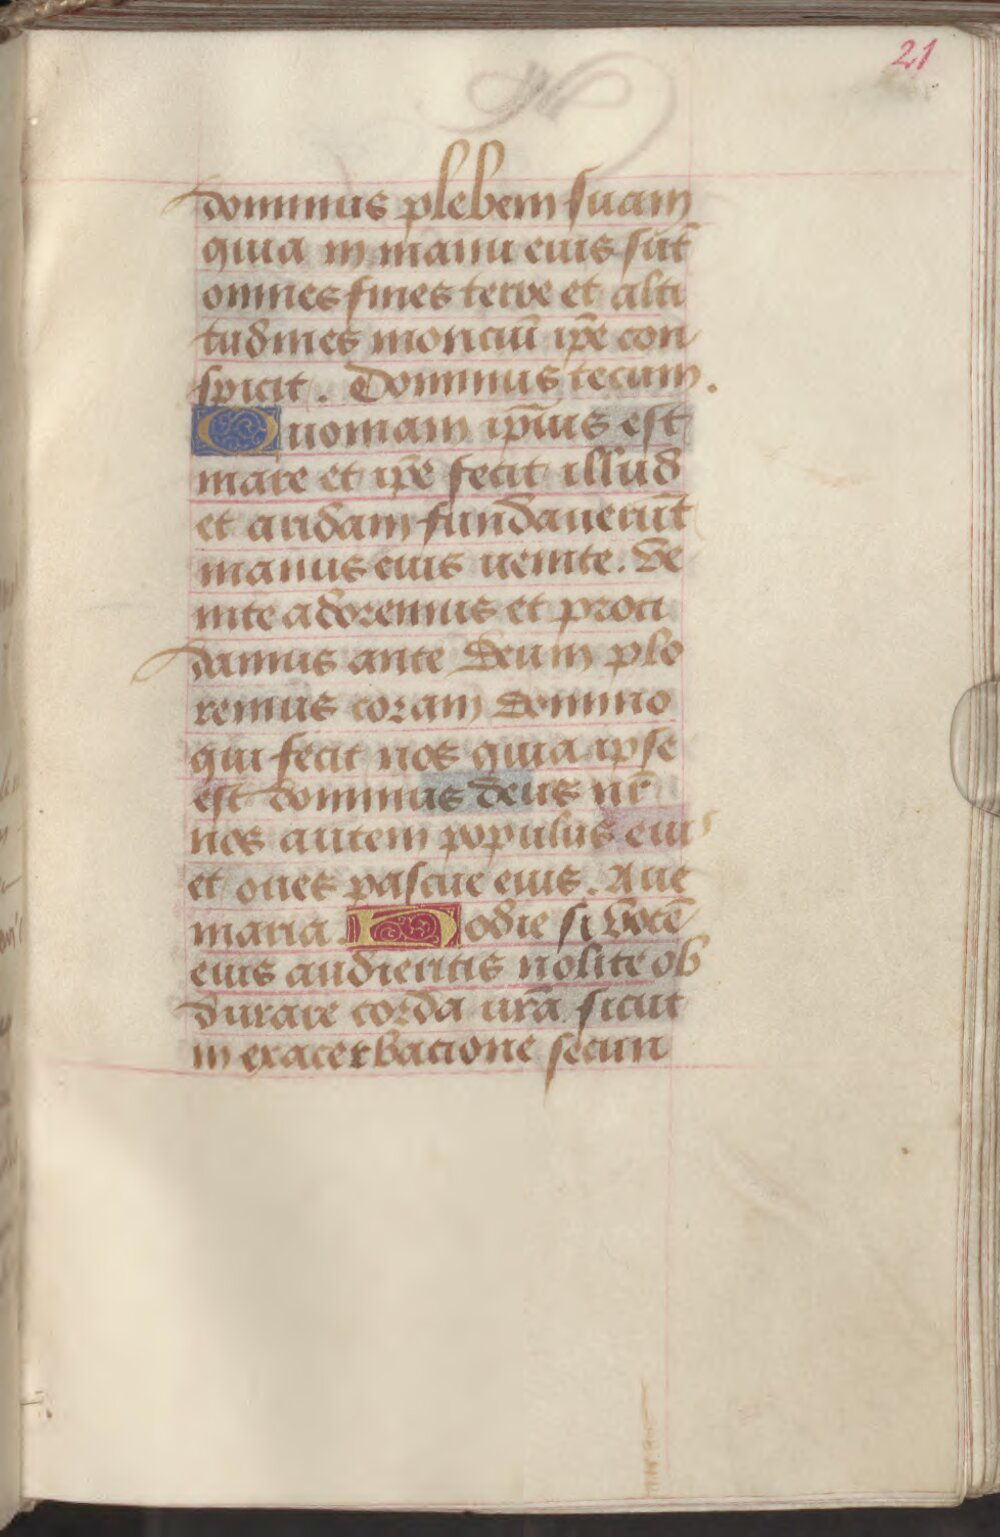 21
dominus plebem suam
quia in manu eius sūt
omnes fines terre et alti
tudines monciū ip̄e con
spicit. Dominus tecum.
Quoniam ip̄ius est
mare et ip̄e fecit illud
et aridam fundauerūt
manus eius uenite. Ve
nite adoremus et proci
damus ante deum plo
remus coram domino
qui fecit nos quia ipse
est dominus deus nr̄
nos autem populus eius
et oues pascue eius. Aue
maria Hodie si vocē
eius audieritis nolite ob
durare corda urā sicut
in exacerbacione secun